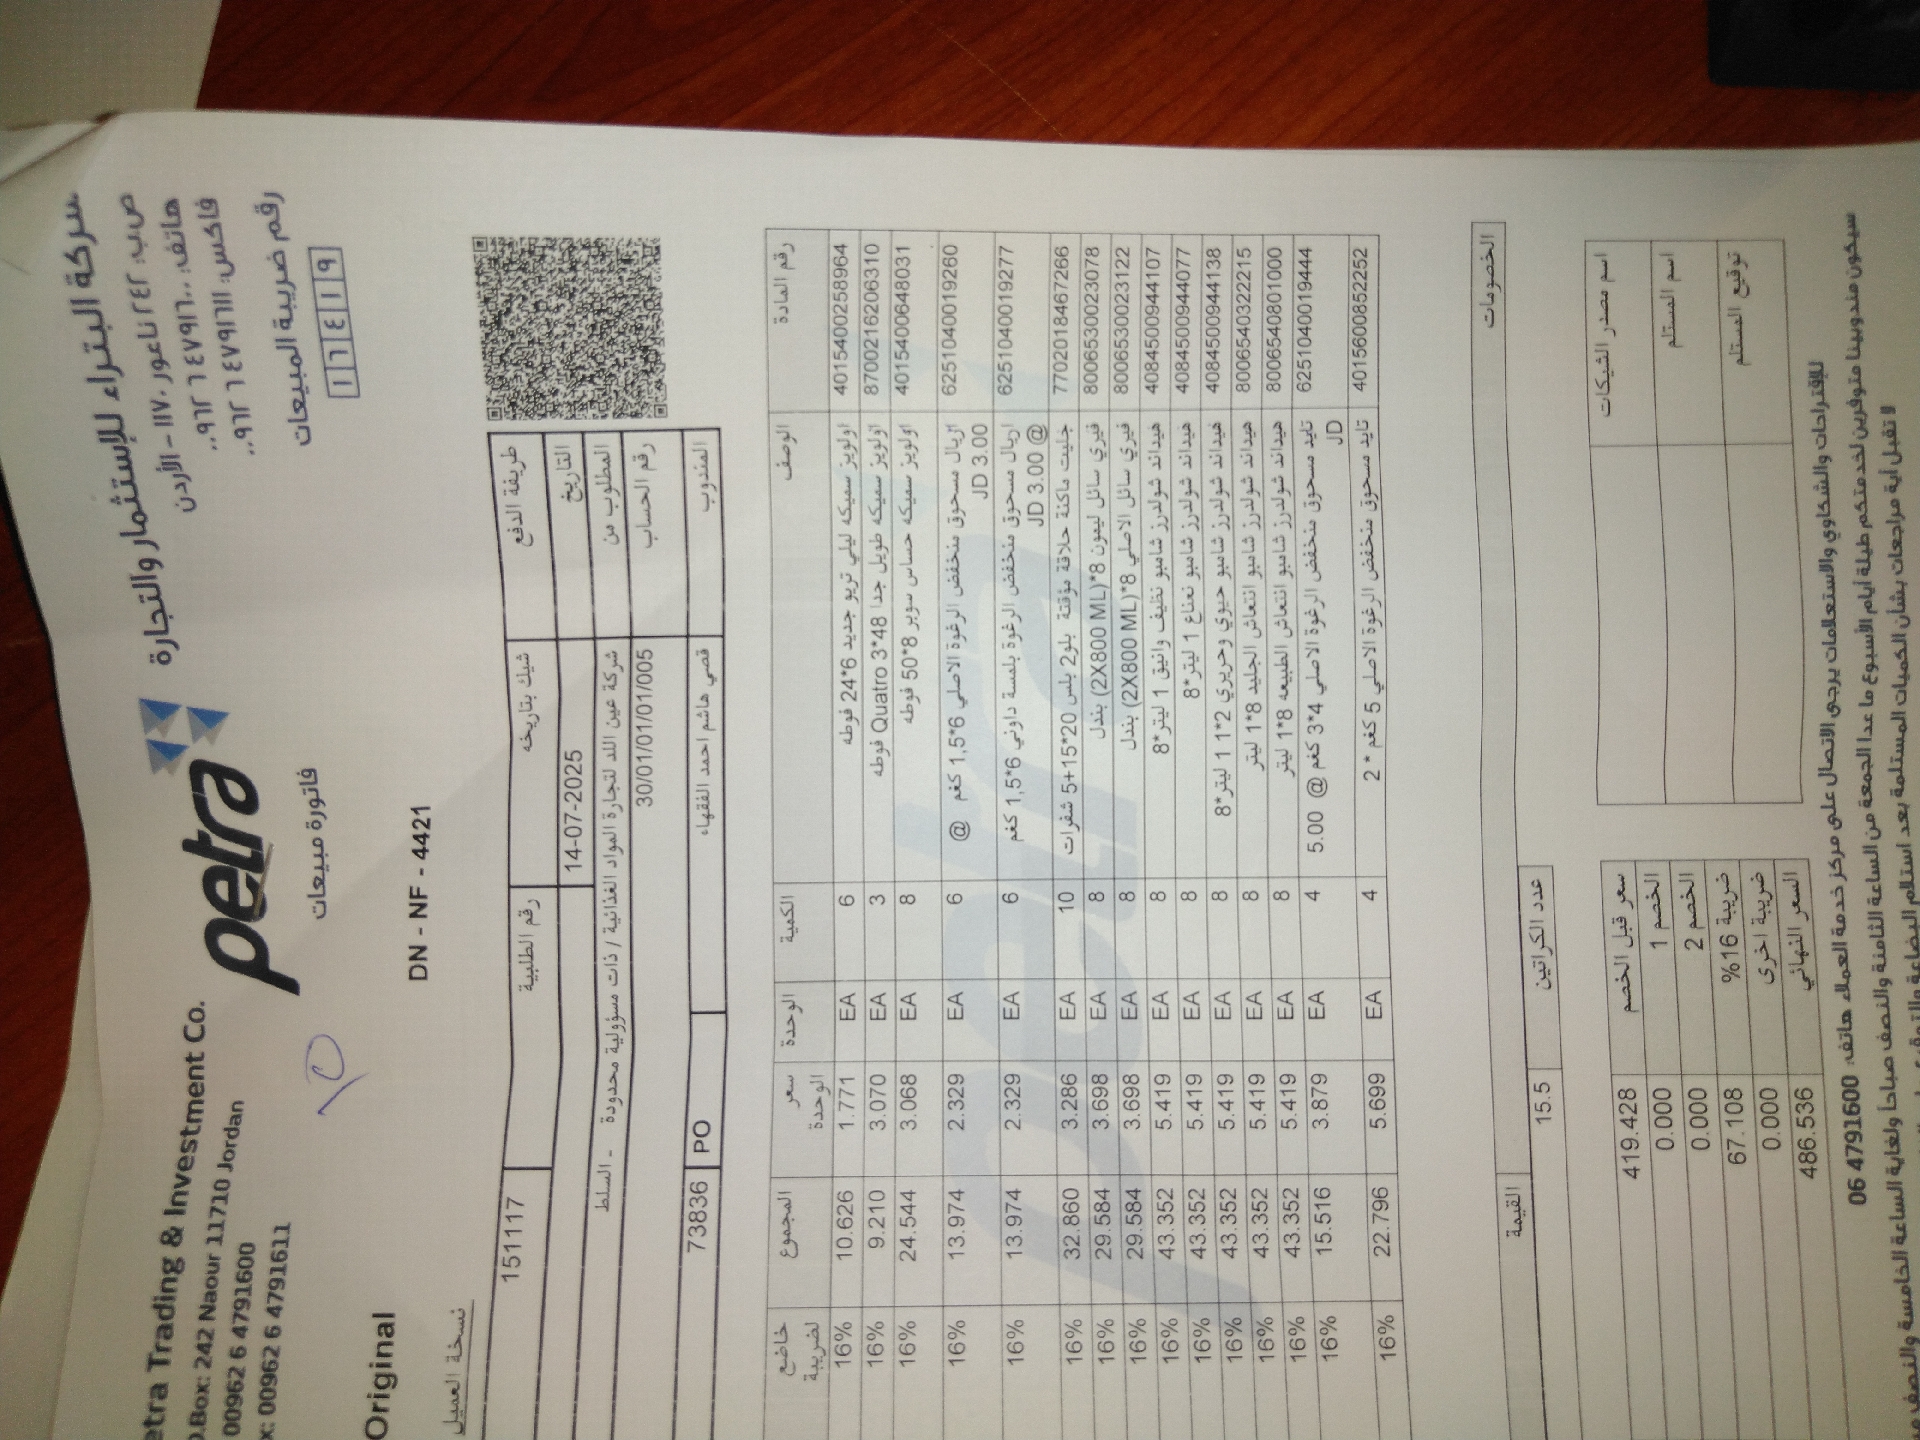 شركة البتراء للإستثمار والتجارة
ص.ب: ٢٤٢ ناعور ١١٧٠ – الأردن
هاتف: ٤٧٩١٦٠٠ ٦ ٠٠٩٦٢
فاكس: ٤٧٩١٦١١ ٦ ٠٠٩٦٢
رقم ضريبة المبيعات
١٦٤١٩
petra
etra Trading & Investment Co.
O.Box: 242 Naour 11710 Jordan
00962 6 4791600
x: 00962 6 4791611
فاتورة مبيعات
DN - NF - 4421
Original
نسخة العميل
طريقة الدفع شيك بتاريخه رقم الطلبية 151117
التاريخ 14-07-2025
المطلوب من شركة عين اللد لتجارة المواد الغذائية / ذات مسؤولية محدودة - السلط
رقم الحساب 30/01/01/01/005
المندوب قصي هاشم احمد الفقهاء PO 73836
رقم المادة الوصف الكمية الوحدة سعر الوحدة المجموع خاضع لضريبة
4015400258964 اولويز سميكه ليلي تريو جديد 6*24 فوطه 6 EA 1.771 10.626 16%
8700216206310 اولويز سميكه طويل جدا Quatro 3*48 فوطه 3 EA 3.070 9.210 16%
4015400648031 اولويز سميكه حساس سوبر 8*50 فوطه 8 EA 3.068 24.544 16%
6251040019260 اريال مسحوق منخفض الرغوة الاصلي 6*1,5 كغم @ 6 EA 2.329 13.974 16%
JD 3.00
6251040019277 اريال مسحوق منخفض الرغوة بلمسة داوني 6*1,5 كغم 6 EA 2.329 13.974 16%
JD 3.00 @
7702018467266 جليت ماكنة حلاقة مؤقتة بلو2 بلس 20*15+5 شفرات 10 EA 3.286 32.860 16%
8006530023078 فيري سائل ليمون 8*(2X800 ML) بندل 8 EA 3.698 29.584 16%
8006530023122 فيري سائل الاصلي 8*(2X800 ML) بندل 8 EA 3.698 29.584 16%
4084500944107 هيداند شولدرز شامبو نظيف وانيق 1 ليتر*8 8 EA 5.419 43.352 16%
4084500944077 هيداند شولدرز شامبو نعناع 1 ليتر*8 8 EA 5.419 43.352 16%
4084500944138 هيداند شولدرز شامبو حيوي وحريري 2*1 1 ليتر*8 8 EA 5.419 43.352 16%
8006540322215 هيداند شولدرز شامبو انتعاش الجليد 8*1 ليتر 8 EA 5.419 43.352 16%
8006540801000 هيداند شولدرز شامبو انتعاش الطبيعه 8*1 ليتر 8 EA 5.419 43.352 16%
6251040019444 تايد مسحوق منخفض الرغوة الاصلي 4*3 كغم @ 5.00 4 EA 3.879 15.516 16%
JD
4015600852252 تايد مسحوق منخفض الرغوة الاصلي 5 كغم * 2 4 EA 5.699 22.796 16%
الخصومات عدد الكراتين 15.5 القيمة
سعر قبل الخصم 419.428
الخصم 1 0.000
الخصم 2 0.000
ضريبة 16% 67.108
ضريبة اخرى 0.000
السعر النهائي 486.536
اسم مصدر الشيكات
اسم المستلم
توقيع المستلم
للإقتراحات والشكاوي والاستعلامات يرجى الاتصال على مركز خدمة العملاء هاتف: 4791600 06
سيكون مندوبينا متوفرين لخدمتكم طيلة أيام الأسبوع ما عدا الجمعة من الساعة الثامنة والنصف صباحا ولغاية الساعة الخامسة والنصف
لا تقبل أية مراجعات بشأن الكميات المستلمة بعد استلام البضاعة والتوقيع